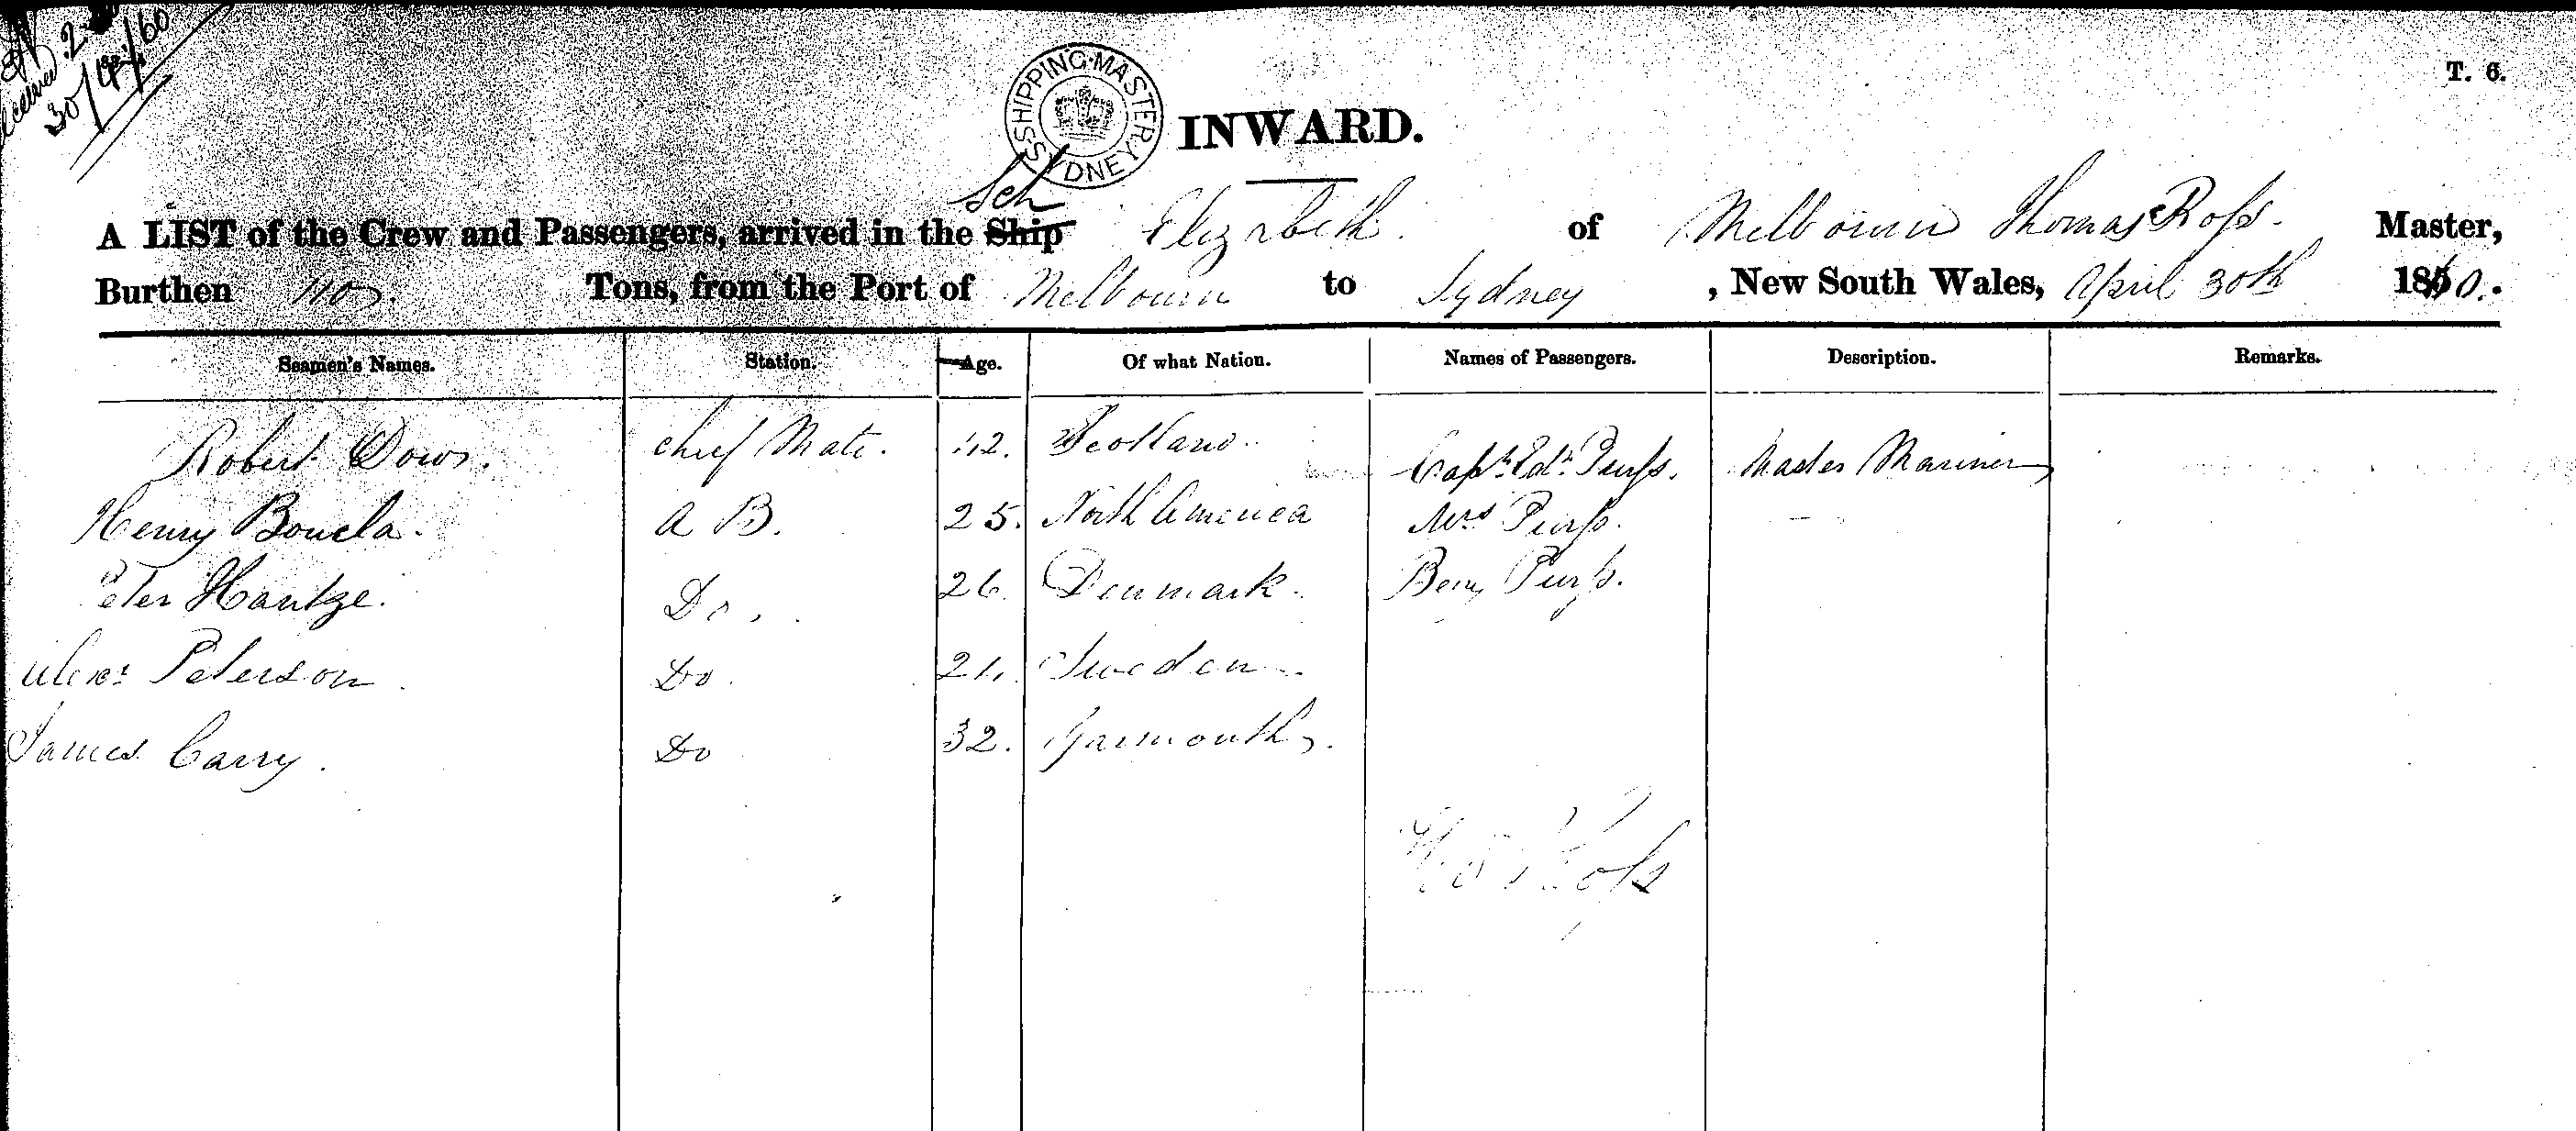 30/4/60
T. 6.
SHIPPING MASTER SYDNEY
INWARD.
Sch
A LIST of the Crew and Passengers, arrived in the Ship Elizabeth of Melbourne Thomas Ross Master,
Burthen Tons, from the Port of Melbourn to Sydney, New South Wales, April 30th 1860.
Seamen's Names. Station. Age. Of what Nation. Names of Passengers. Description. Remarks.
Robert Dows. Chief Mate. 42. Scotland. Capt. Edd. Purss. Master Mariner
Henry Boucla. A B. 25. North America Mrs Purss.
Peter Hantze. Do. 26. Denmark. Purss.
Alexr Peterson Do. Sweden
James Carry. Do 32. Yarmouth.
Ross